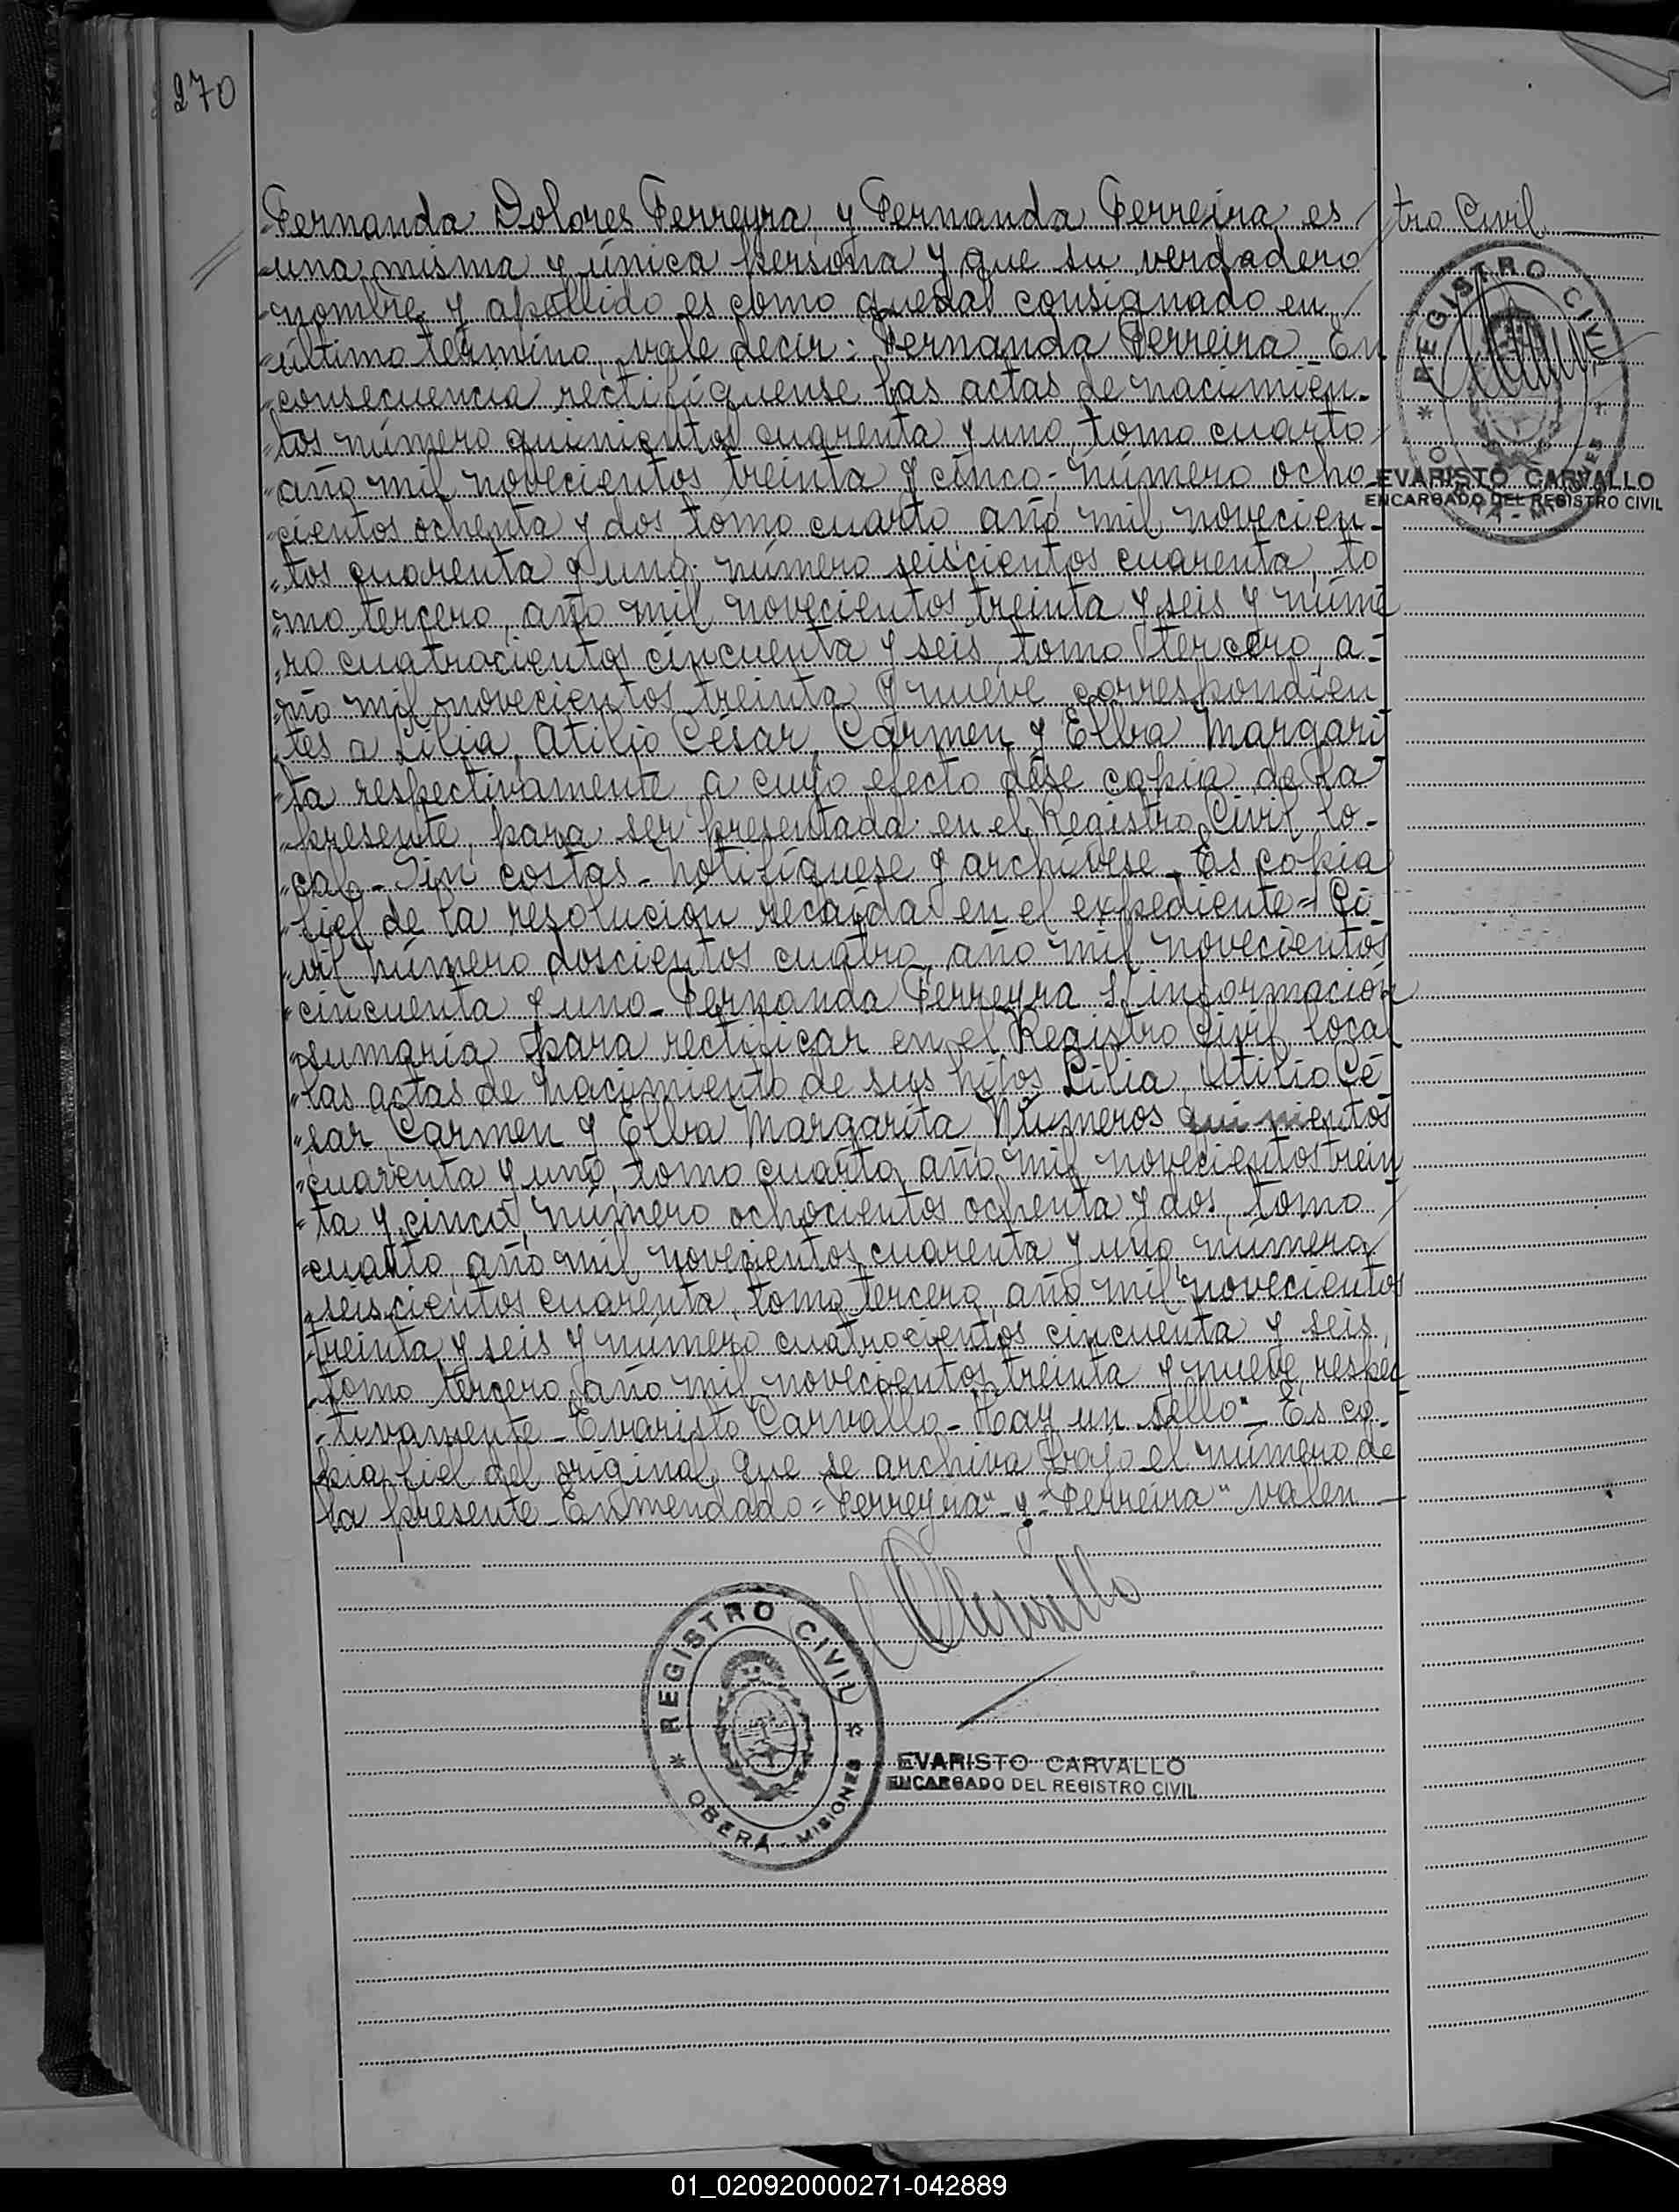 270
Fernanda Dolores Ferreyra, y Fernanda Ferreira, es
"una misma y única persona y que su verdadero
"nombre y apellido es como queda consignado en
"último término, vale decir: Fernanda Ferreira_ En
"consecuencia rectifíquense las actas de nacimien-
"tos número quinientos cuarenta y uno, tomo cuarto
"año mil novecientos treinta y cinco; número ocho
"cientos ochenta y dos, tomo cuarto año mil novecien-
"tos cuarenta y uno; número seiscientos cuarenta, to
"mo tercero, año mil novecientos treinta y seis y núme
"ro cuatrocientos cincuenta y seis, tomo tercero, a-
"ño mil novecientos treinta y nueve correspondien
"tes a Lilia, Atilio César, Carmen y Elba Margari
"ta respectivamente a cuyo efecto dése copia de la
"presente, para ser presentada en el Registro Civil lo-
"cal_ Sin costas_ Notifíquese y archívese_ Es copia
"fiel de la resolución recaída en el expediente= Ci-
"vil número doscientos cuatro, año mil novecientos
"cincuenta y uno_ Fernanda Ferreyra s/ información
"sumaria para rectificar en el Registro Civil local
"las actas de nacimiento de sus hijos Lilia, Atilio Cé
"sar, Carmen y Elba Margarita, Números quinientos
"cuarenta y uno, tomo cuarto, año mil novecientos trein
"ta y cinco, número ochocientos ochenta y dos, tomo
"cuarto, año mil novecientos cuarenta y uno número
"seiscientos cuarenta, tomo tercero, año mil novecientos
"treinta y seis y número cuatrocientos cincuenta y seis,
"tomo tercero, año mil novecientos treinta y nueve, respec
"tivamente_ Evaristo Carvallo_ Hay un sello"_ Es co-
pia fiel del original, que se archiva bajo el número de
la presente_ Enmendado="Ferreyra" y "Ferreira" valen_
tro Civil
REGISTRO CIVIL
EVARISTO CARVALLO
ENCARGADO DEL REGISTRO CIVIL
Carvallo
REGISTRO CIVIL
OBERA - MISIONES
EVARISTO CARVALLO
ENCARGADO DEL REGISTRO CIVIL
01_020920000271-042889